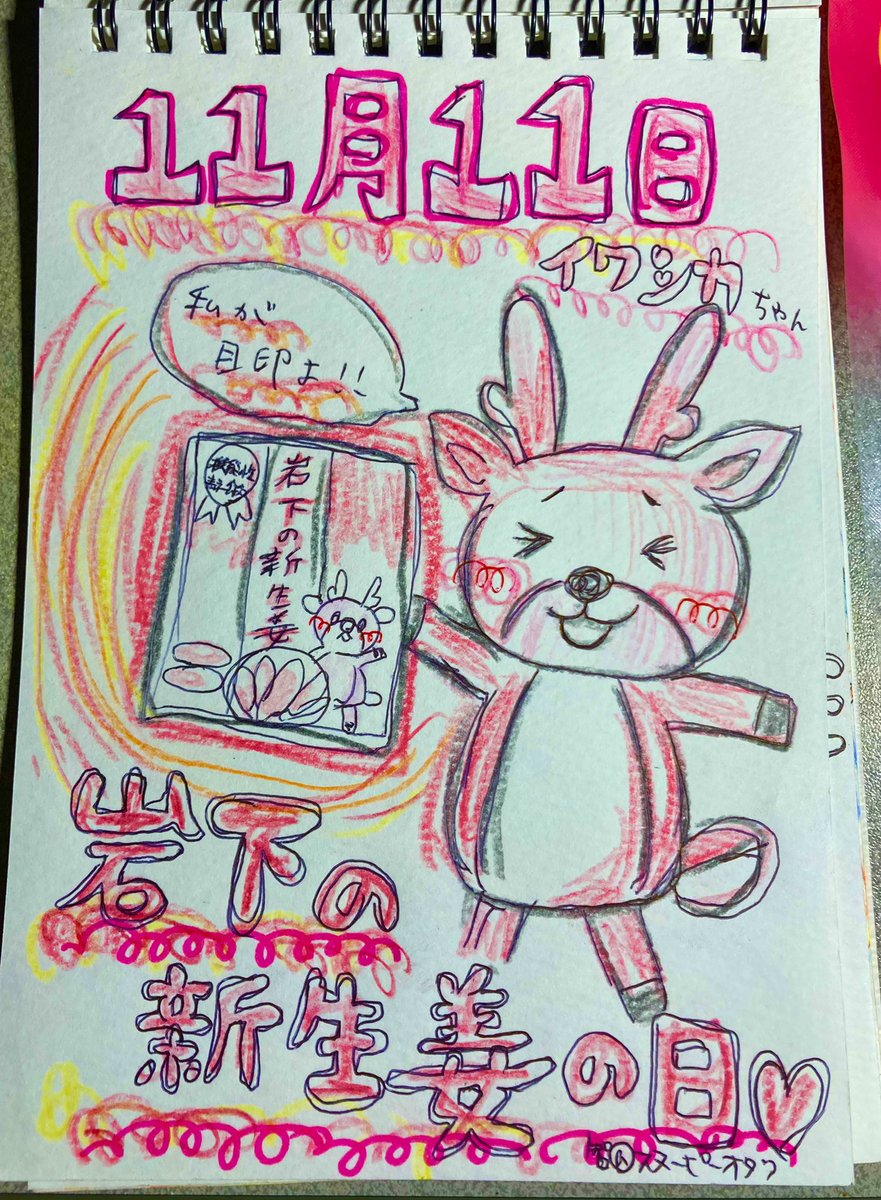 11月11日
イワシカちゃん
私が
目印よ!!
岩下の新生姜
岩下の
新生姜の日♡
スヌーピーオタク